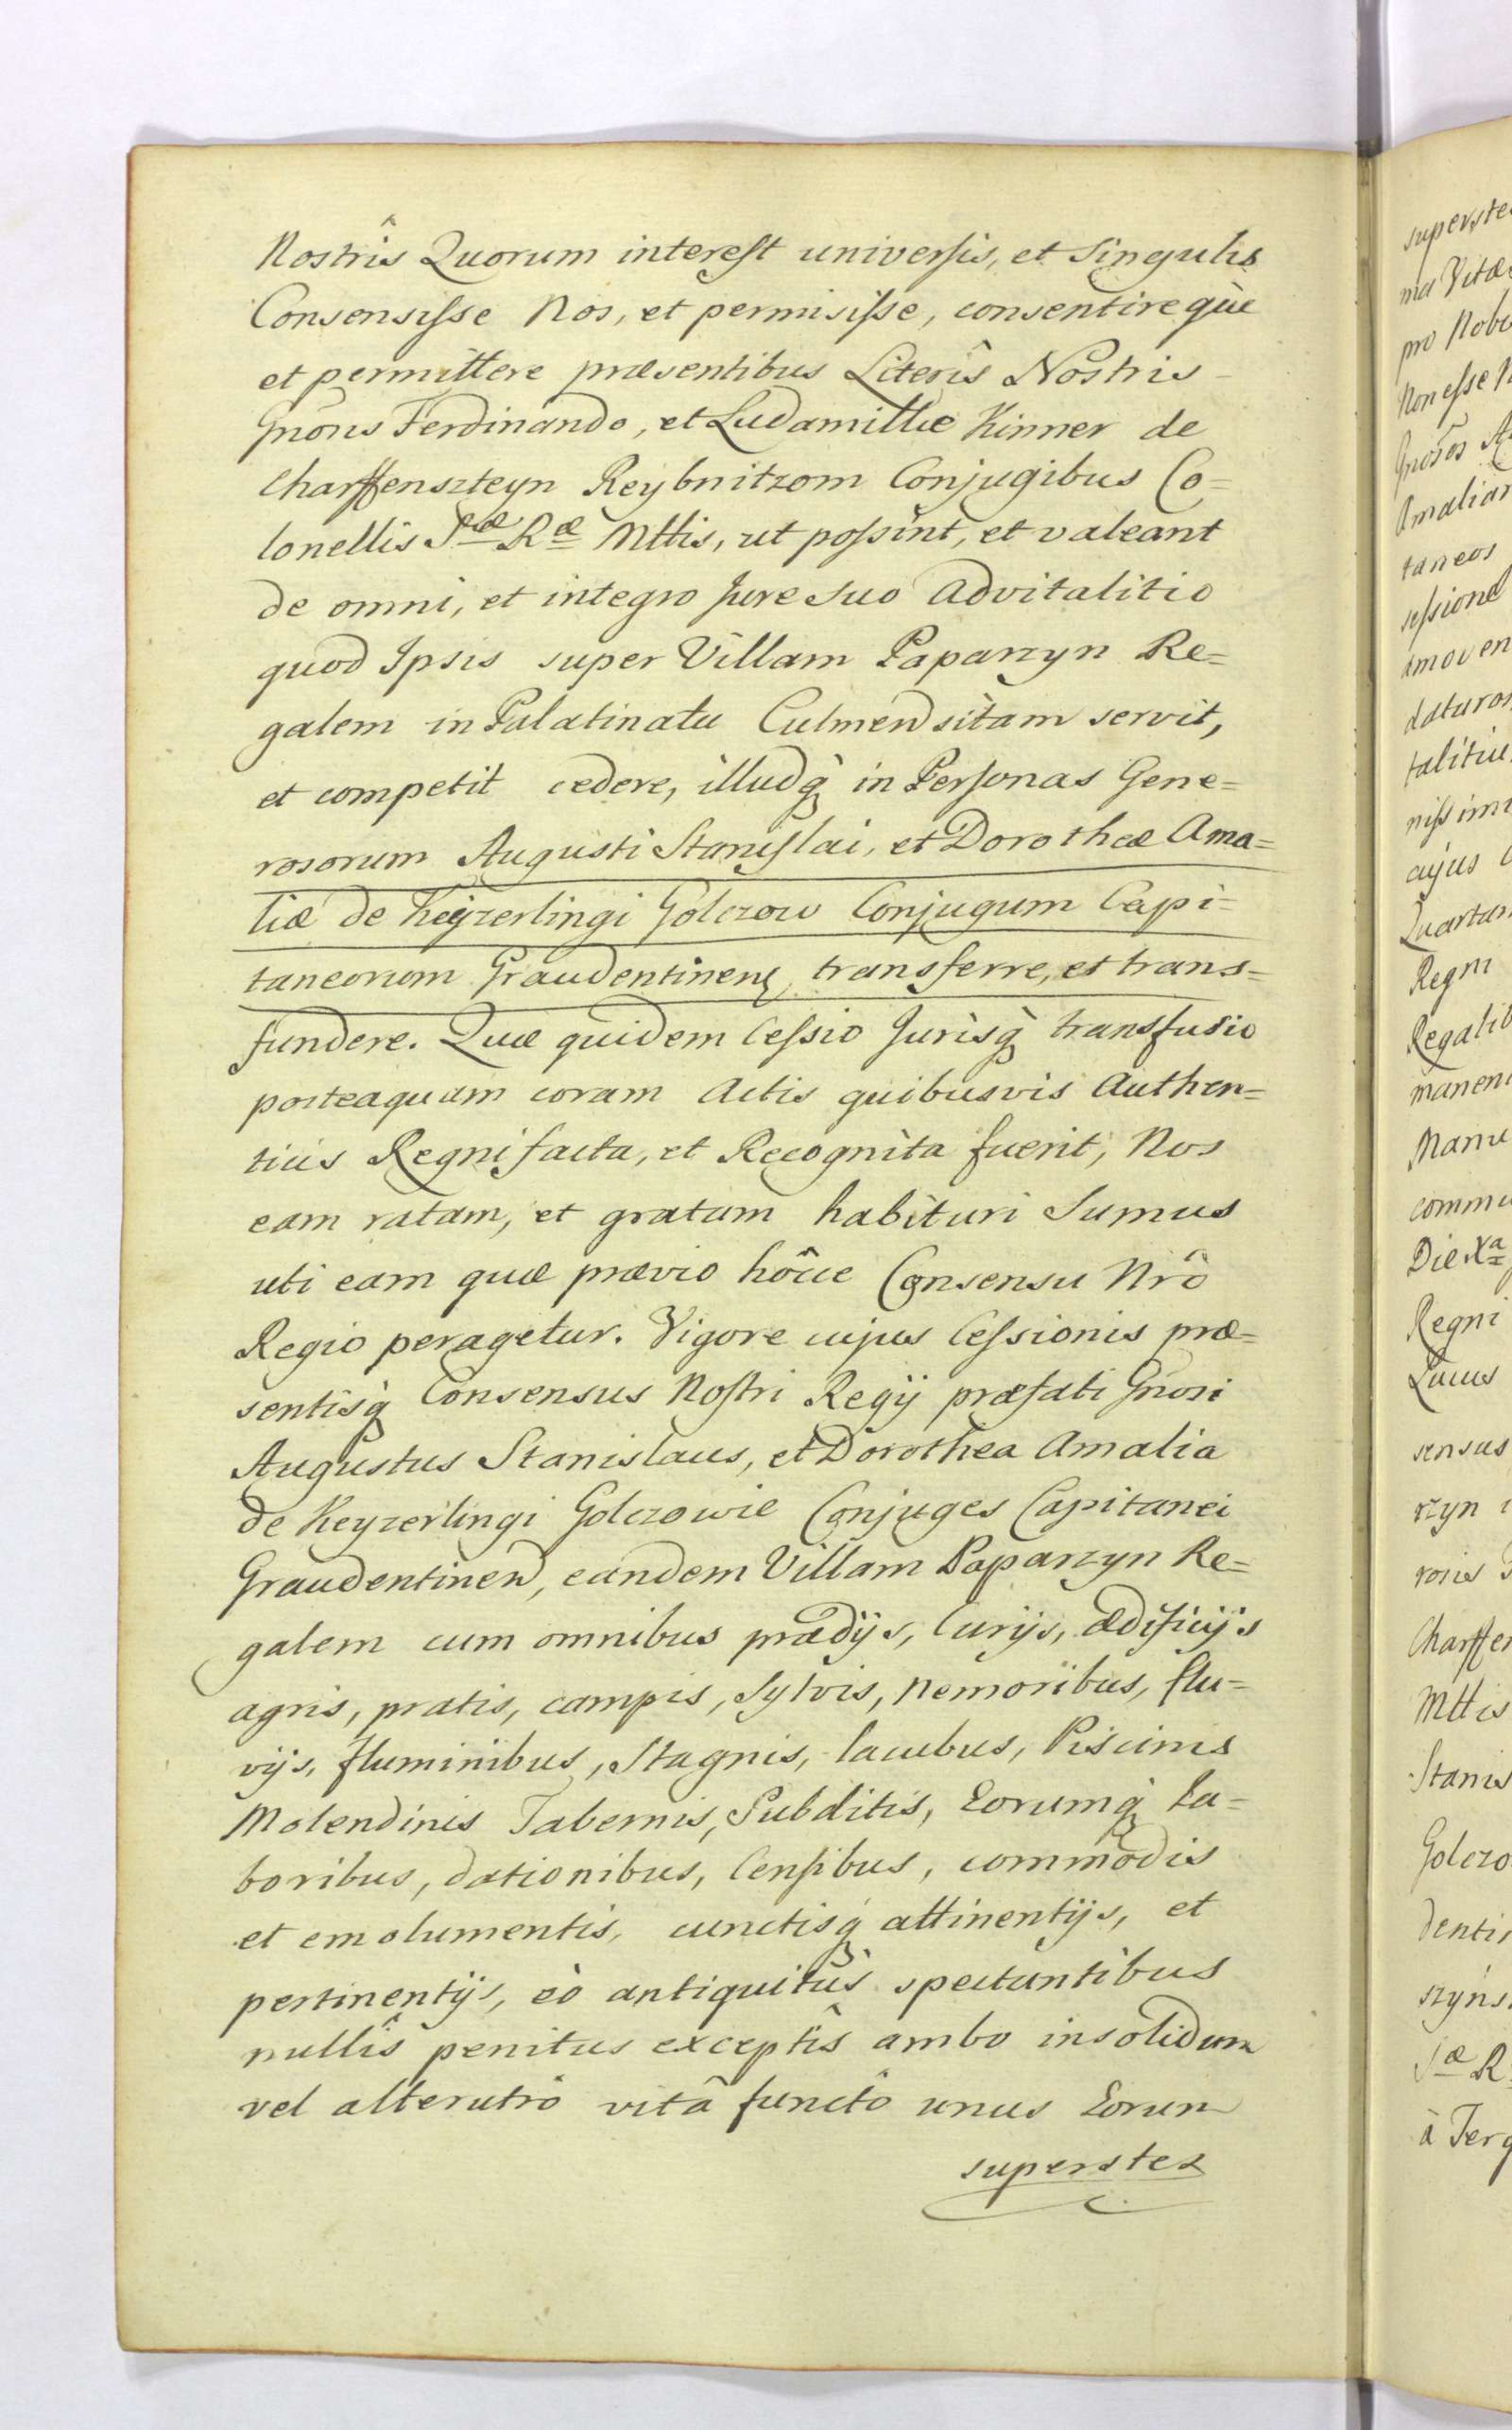 Nostrîs Quorum interest universis, et Singulis
Consensisse Nos, et permisisse, consentireque
et permittere præsentibus Literîs Nostris
Gnõris Ferdinando, et Ludamillæ Kinner de
Charffenszteyn Reybnitzom Conjugibus Co=
lonellis Sæ Ræ Mttis, ut possint, et valeant
de omni, et integro Jure Suo Advitalitio
quod Ipsis super Villam Paparzyn Re=
galem in Palatinatu Culmen sitam servit,
et competit cedere, illudq̀ in Personas Gene=
rosorum Augusti Stanislai, et Dorotheæ Ama=
liæ de Keyzerlingi Golczow Conjugum Capi=
taneorum Graudentinen, transferre, et trans=
fundere. Quæ quidem Cessio Jurisq̀ transfusio
posteaquam coram Actis quibusvis Authen=
ticis Regni facta, et Recognita fuerit, Nos
eam ratam, et gratam habituri Sumus
uti eam quæ prævio hôcce Consensu Nrô
Regio peragetur. Vigore cujus Cessionis præ=
sentisq̀ Consensus Nostri Regij præfati Gnosi
Augustus Stanislaus, et Dorothea Amalia
de Keyzerlingi Golczowie Conjuges Capitanei
Graudentinen, eandem Villam Paparzyn Re=
galem cum omnibus prædijs, Curijs, ædificijs
agris, pratis, campis, Sylvis, nemoribus, flu=
vijs, fluminibus, Stagnis, lacubus, Piscinis
Molendinis Tabernis, Subditis, Eorumq̀ La=
boribus, dationibus, Censibus, commodis
et emolumentis, cunctisq̀ attinentijs, et
pertinentijs, eò antiquitùs spectantibus
nullîs penitus exceptîs ambo insolidum
vel alterutrô vitâ functô unus Eorum
superstes
superstes
ma Vitæ
pro Nobi
Non esse
Gnosos
Amaliam
taneos
sessione
amoven
daturos
talitiu
nissimi
cujus
Quartam
Regni
Regalib
manen
Manu
commu
Die Xa
Regni
Locus
sensus
rzyn
ronis
Charffen
Mttis
Stanis
Golczo
dentin
rzyns
Sæ R
à Terg